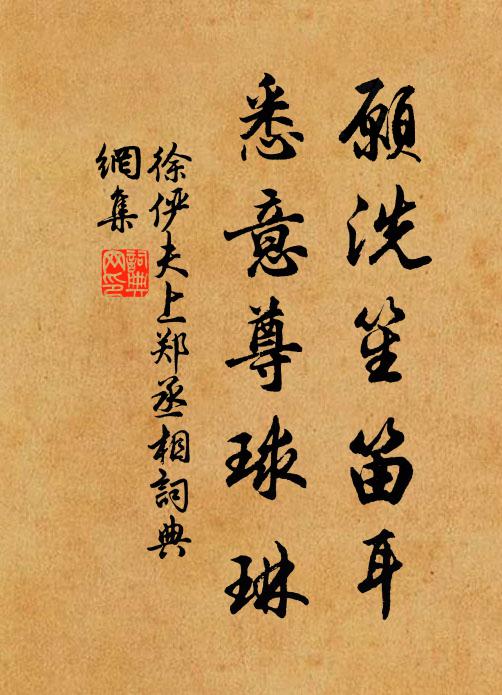 願洗笙笛耳
悉意尊球琳
徐俨夫上郑丞相詞典
網集
詞典
网印